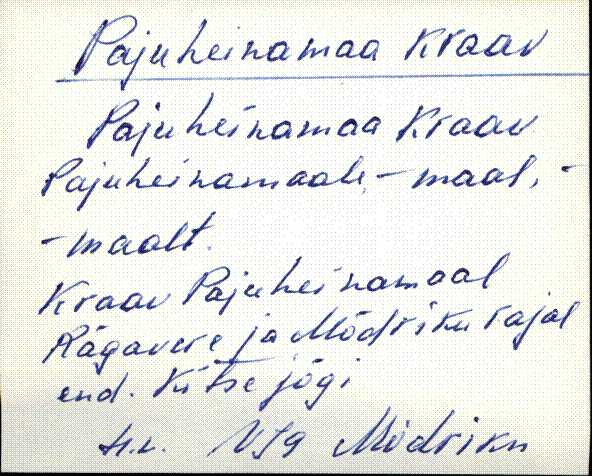 Pajuheinamaa Kraav
Pajuheinamaa Kraav
Pajuheinamaale, -maal, -
-maalt.
Kraav Pajuheinamaal
Rägavere ja Mõdriku rajal
end. Kitse jõgi
Mõdriku